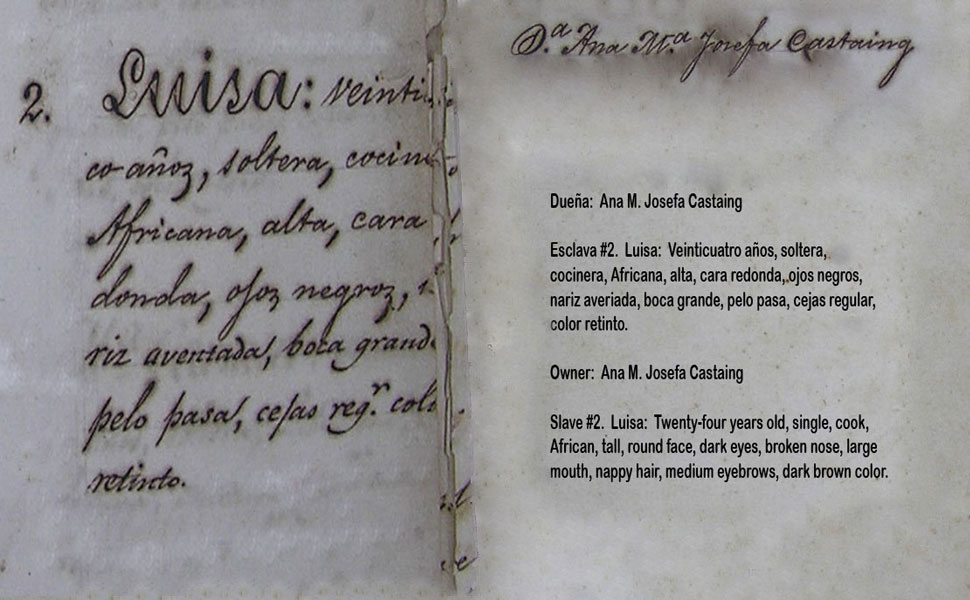 2. Luisa: Veinti
co añoz, soltera, cocin
Africana, alta, cara
donda, ojoz negroz,
riz aventada, boca grand
pelo pasa, cejas reg.r col
retinto.
D.a Ana M.a Josefa Castaing
Dueña: Ana M. Josefa Castaing
Esclava #2. Luisa: Veinticuatro años, soltera,
cocinera, Africana, alta, cara redonda, ojos negros,
nariz averiada, boca grande, pelo pasa, cejas regular,
color retinto.
Owner: Ana M. Josefa Castaing
Slave #2. Luisa: Twenty-four years old, single, cook,
African, tall, round face, dark eyes, broken nose, large
mouth, nappy hair, medium eyebrows, dark brown color.